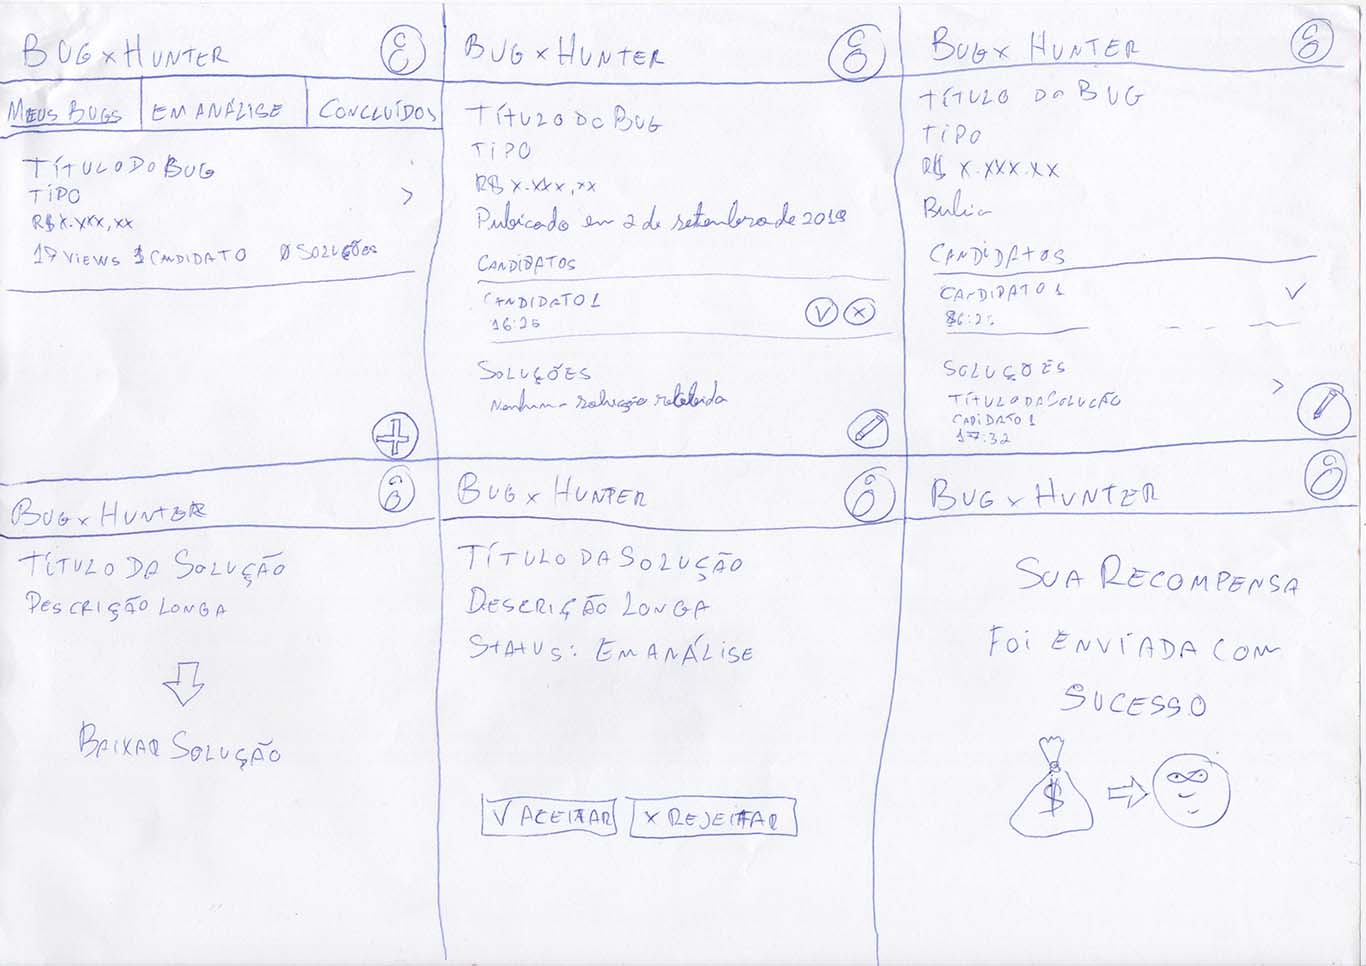 BUG x HUNTER
MEUS BUGS
EM ANÁLISE
CONCLUÍDOS
TÍTULO DO BUG
TIPO
R$ X.XXX,XX
17 VIEWS 1 CANDIDATO 0 SOLUÇÕES
BUG x HUNTER
TÍTULO DO BUG
TIPO
R$ X.XXX,XX
Pubicado em 2 de setembro de 2019
CANDIDATOS
CANDIDATO 1
16:25
SOLUÇÕES
Nenhuma solução
BUG x HUNTER
TÍTULO DO BUG
TIPO
R$ X.XXX.XX
CANDIDATOS
CANDIDATO 1
SOLUÇÕES
TÍTULO DA SOLUÇÃO
CADIDATO 1
17:32
BUG x HUNTER
TÍTULO DA SOLUÇÃO
DESCRIÇÃO LONGA
BAIXAR SOLUÇÃO
BUG x HUNTER
TÍTULO DA SOLUÇÃO
DESCRIÇÃO LONGA
STATUS: EM ANÁLISE
V ACEITAR
X REJEITAR
BUG x HUNTER
SUA RECOMPENSA
FOI ENVIADA COM
SUCESSO
$